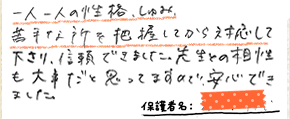 一人一人の性格、しゅみ、
苦手な所を把握してから対応して
下さり、信頼できました。先生との相性
も大事だと思ってますので、安心でき
ました。
保護者名：